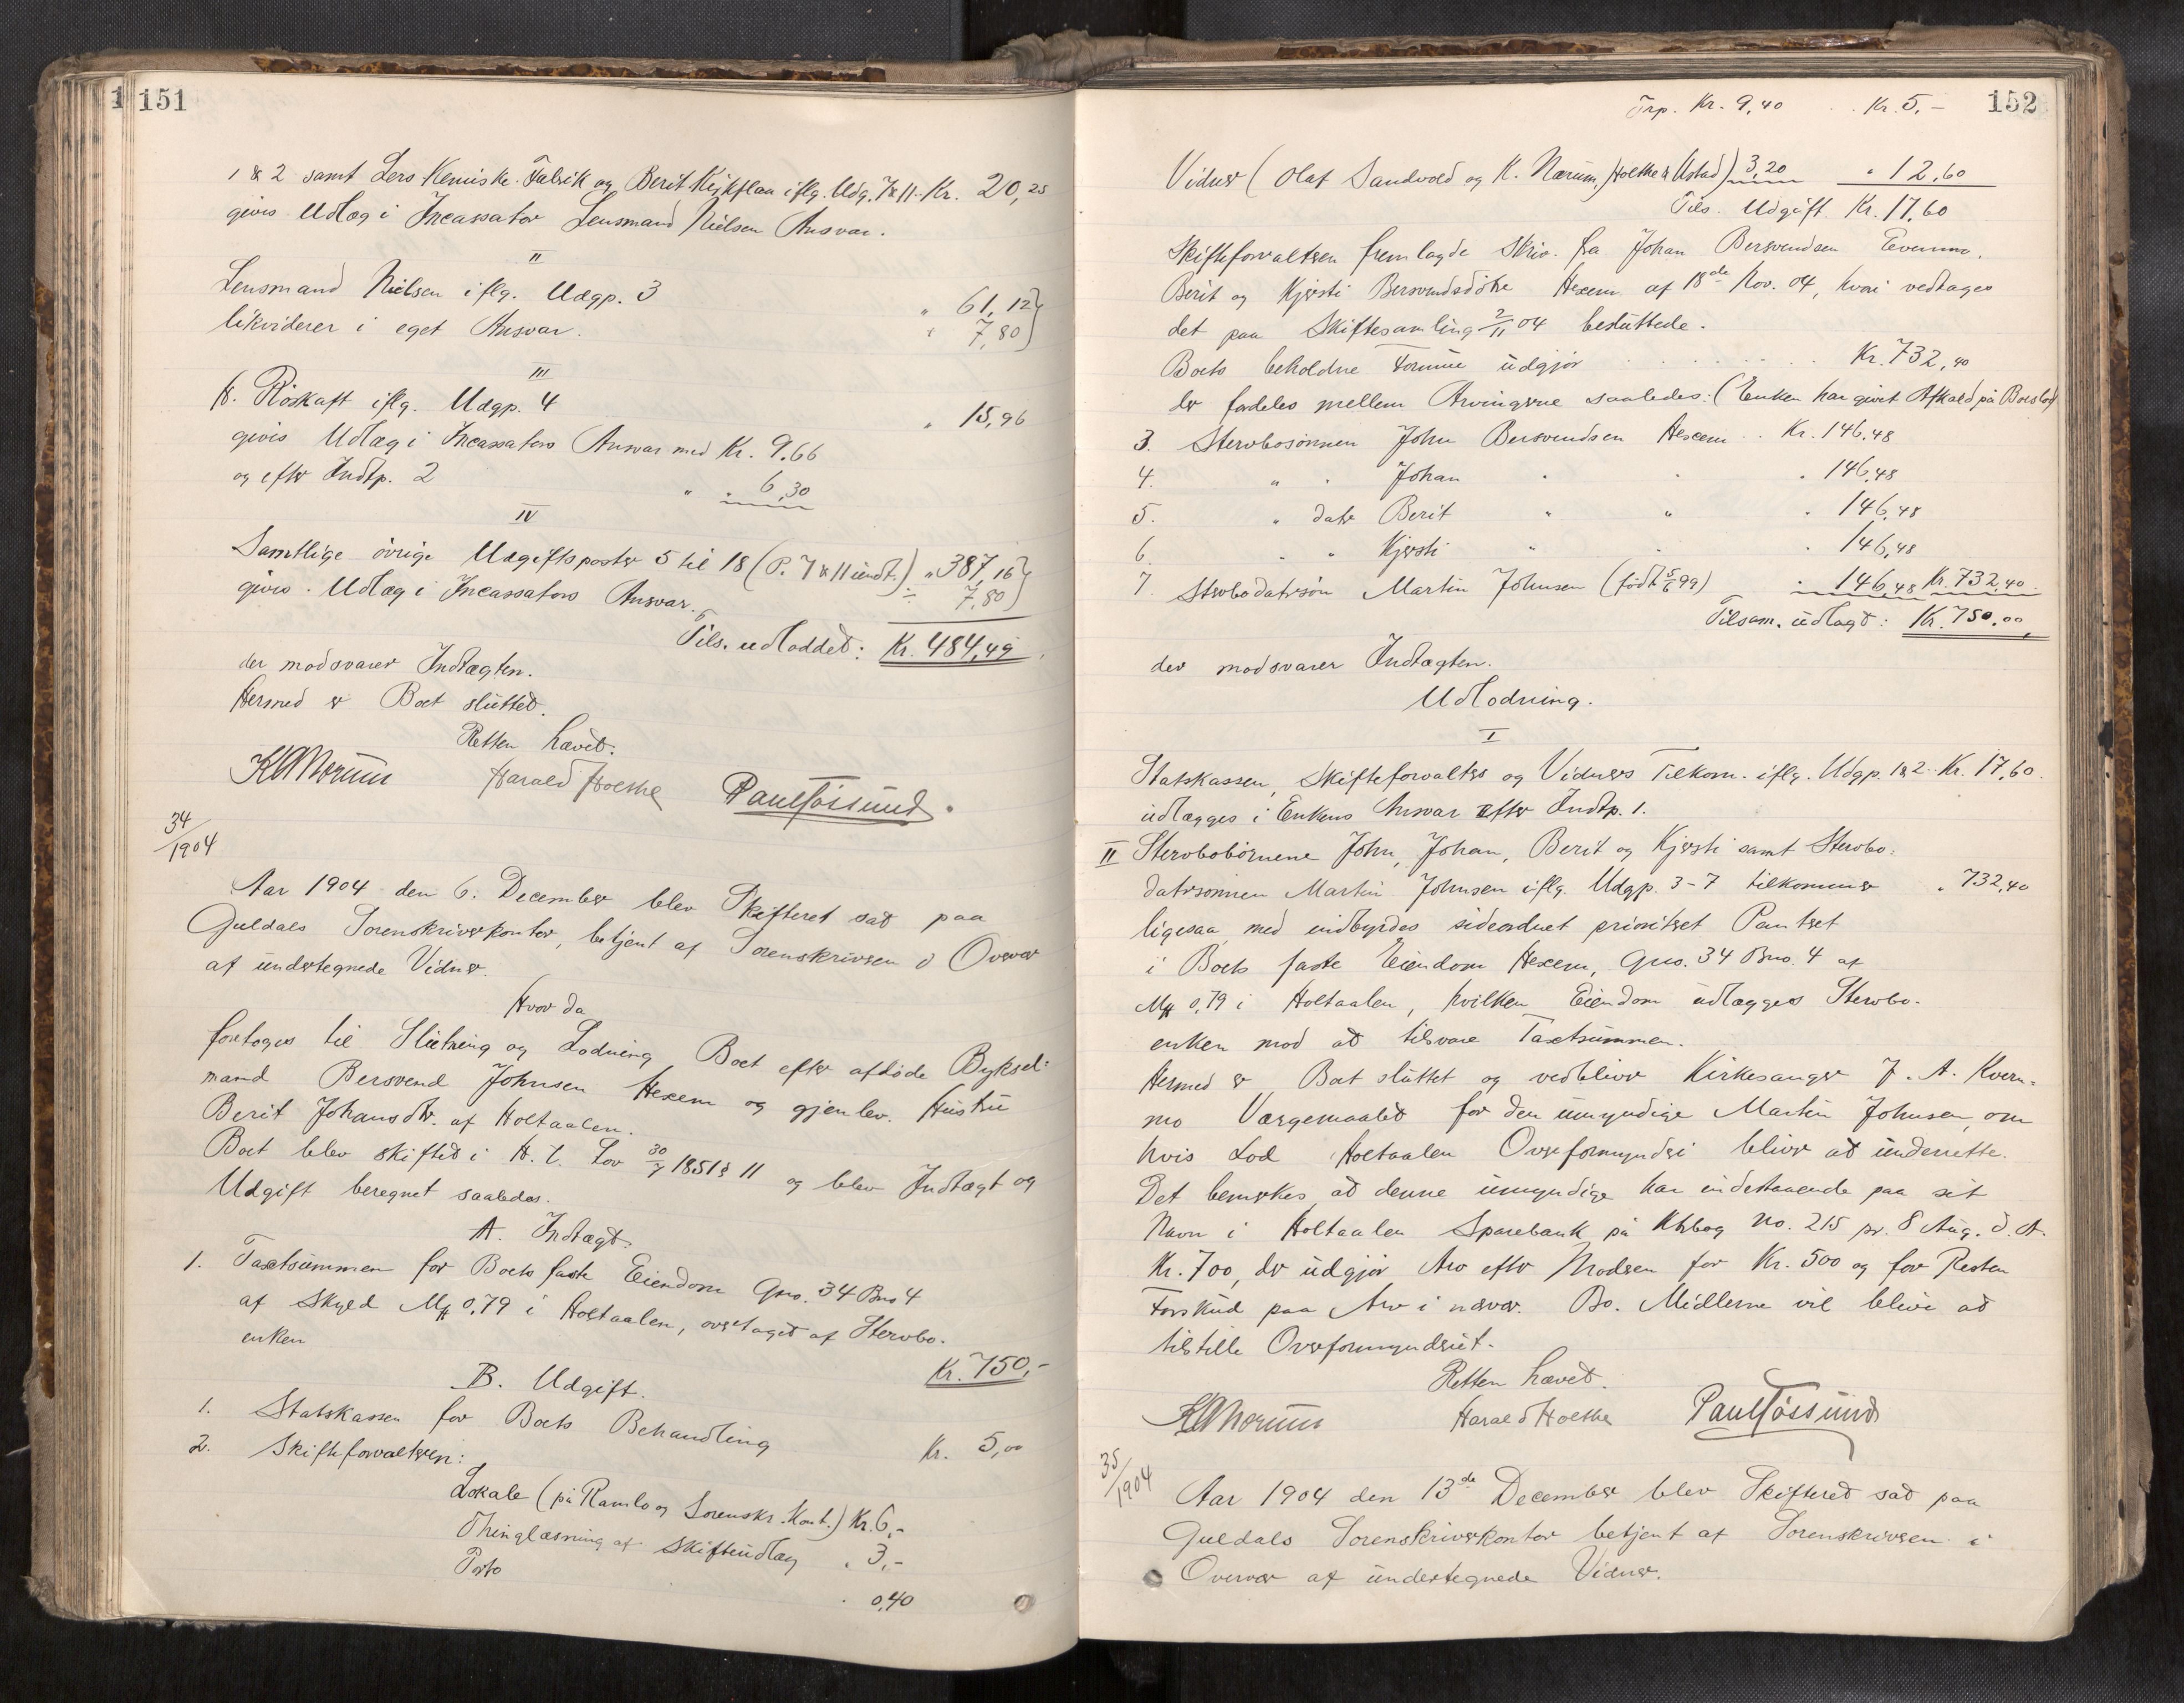 151
1 & 2 samt Lers Kemiske Fabrik og Berit Kirkflaa iflg. Udg. 7 & 11. Kr. 20,25
givis Udlæg i Incassator Lensmand Nielsen Ansvar.
II
Lensmand Nielsen iflg. Udgp. 3 " 61,12
likviderer i eget Ansvar. " 7,80
III
H. Röskaft iflg. Udgp. 4 " 15,96
givis Udlæg i Incassators Ansvar med Kr. 9.66
og efter Indtp. 2 " " 6,30
IV
Samtlige övrige Udgiftsposter 5 til 18 (P. 7 & 11 undt.) " 387,16
givis Udlæg i Incassators Ansvar. ÷ 7,80
Tils. udloddet: Kr. 484,49
der modsvarer Indtægten.
Hermed er Boet sluttet.
Retten hævet.
K A Nerum Harald Holthe Paul Fössund.
34/1904
Aar 1904 den 6. December blev Skifteret sat paa
Guldals Sorenskriverkontor, betjent af Sorenskriveren i Overvær
af undertegnede Vidner.
Hvor da
foretoges til Slutning og Lodning Boet efter afdøde Byksel-
mand Bersvend Johnsen Hexem og gjenlev. Hustru
Berit Johansdtr. af Holtaalen.
Boet blev skiftet i H. t. Lov 30/7 1851 § 11 og blev Indtægt og
Udgift beregnet saaledes.
A. Indtægt.
1. Taxtsummen for Boets faste Eiendom Gno. 34 Bno 4
af Skyld Mk 0,79 i Holtaalen, overtaget af Stervbo-
enken Kr. 750,-
B. Udgift.
1. Statskassen for Boets Behandling Kr. 5,00
2. Skifteforvalteren:
Lokale (på Ramlo og Sorenskr. Kont.) Kr. 6,-
Thinglæsning af Skifteudlæg " 3,-
Porto " 0,40
152
Trp. Kr. 9,40 . . Kr. 5,-
Vidner (Olaf Sandvold og K. Nærum, Holthe & Ustad) 3,20 " 12,60
Tils. Udgift Kr. 17,60
Skifteforvalteren fremlagde Skriv. fra Johan Bersvendsen Evenmo,
Berit og Kjersti Bersvendsdötre Hexem af 18de Nov. 04, hvori vedtages
det paa Skiftesamling 2/11 04 besluttede.
Boets beholdne Formue udgjör . . . . . . Kr. 732,40
der fordeles mellem Arvingerne saaledes: (Enken har givet Afkald på Boeslod)
3. Stervbosönnen John Bersvendsen Hexem . . Kr. 146,48
4. " " Johan " " " 146,48
5. " datr Berit " " " 146,48
6. " " Kjersti " " " 146,48
7. Stervbodatersön Martin Johnsen (födt 5/6 99) " 146,48 Kr. 732,40.
Tilsam. udlagt: Kr. 750.00
der modsvarer Indtægten.
Udlodning.
I
Statskassen, Skifteforvalters og Vidners Tilkom. iflg. Udgp. 1 & 2. Kr. 17,60.
udlægges i Enkens Ansvar efter Indtp. 1.
II Stervbobörnene John, Johan, Berit og Kjersti samt Stervbo-
datersönnen Martin Johnsen iflg. Udgp. 3-7 tilkommer " 732,40
ligesaa med indbyrdes sideordnet prioritet Panteret
i Boets faste Eiendom Hexem, Gno. 34 Bno. 4 af
Mk 0,79 i Holtaalen, hvilken Eiendom udlægges Stervbo-
enken mod at tilsvare Taxtsummen.
Hermed er Boet sluttet og vedbliver Kirkesanger J. A. Kvern-
mo Værgemaalet for den umyndige Martin Johnsen, om
hvis Lod Holtaalen Overformynderi bliver at underrette.
Det bemerkes at denne umyndige har indestaaende paa sit
Navn i Holtaalen Sparebank på Ktrbog No. 215 pr. 8 Aug. d. A.
Kr. 700, der udgjör Arv efter Moderen for Kr. 500 og for Resten
Forskud paa Arv i nærv. Bo. Midlerne vil blive at
tilstille Overformynderiet.
Retten hævet.
K A Nerum Harald Holthe Paul Fössund
35/1904
Aar 1904 den 13de December blev Skifteret sat paa
Guldals Sorenskriverkontor betjent af Sorenskriveren i
Overvær af undertegnede Vidner.